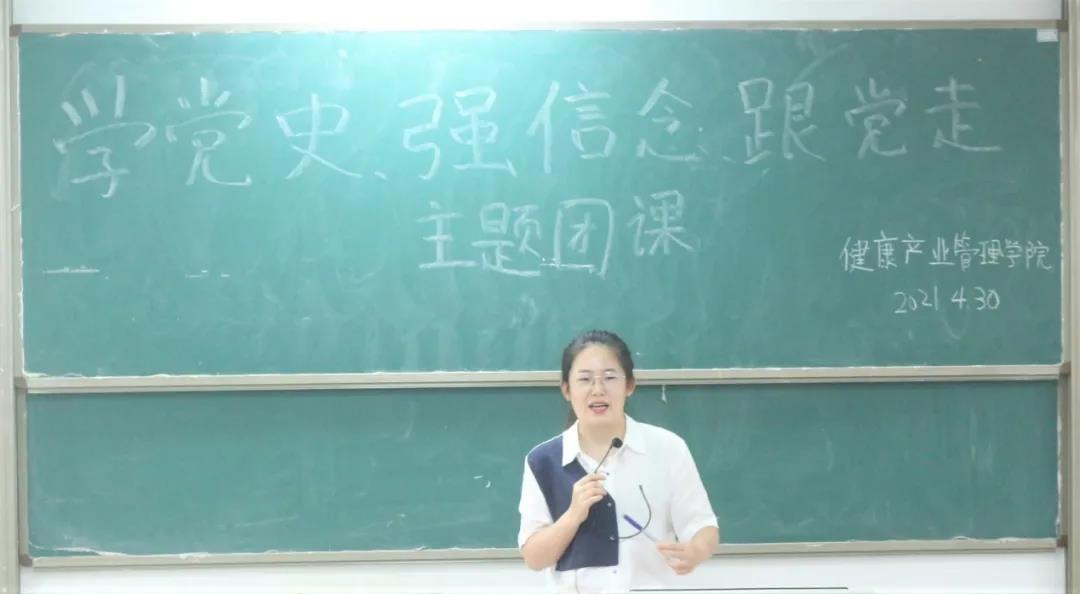 学党史、强信念、跟党走
主题团课
健康产业管理学院
2021 4.30